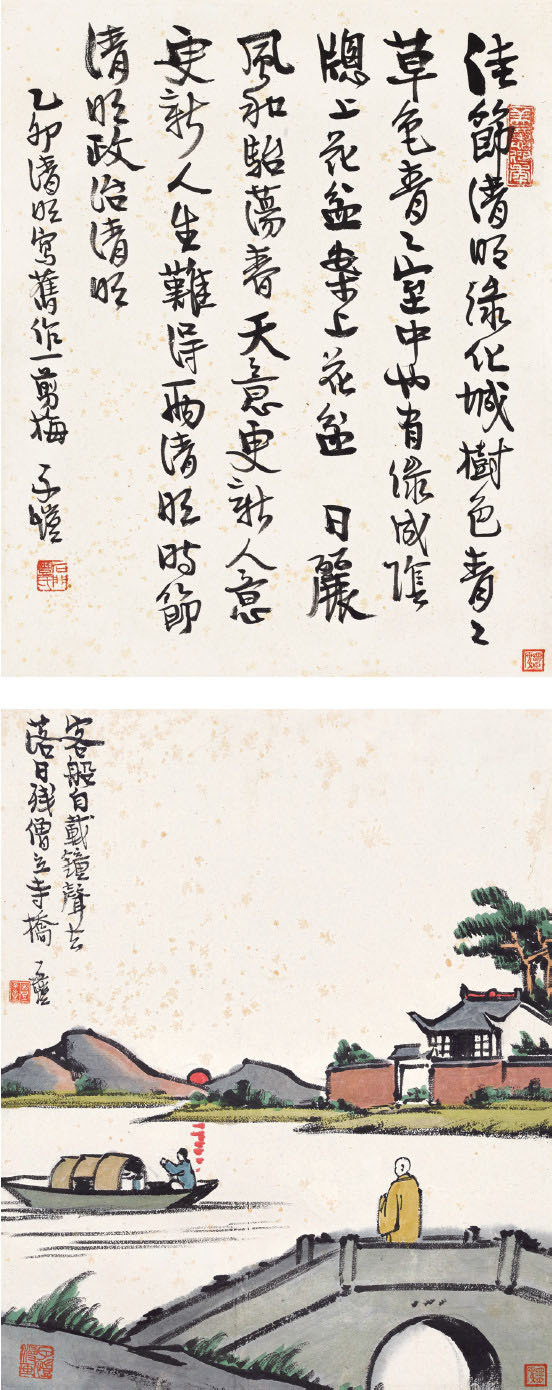 佳節清明綠化城樹色青〻
草色青〻室中也有綠成陰
牕上花盆案上花盆 日麗
風和駘蕩春天意更新人意
更新人生難得兩清明時節
清明政治清明
乙卯清明寫舊作一剪梅 子愷
客船自載鐘聲去
落日殘僧立寺橋 子愷